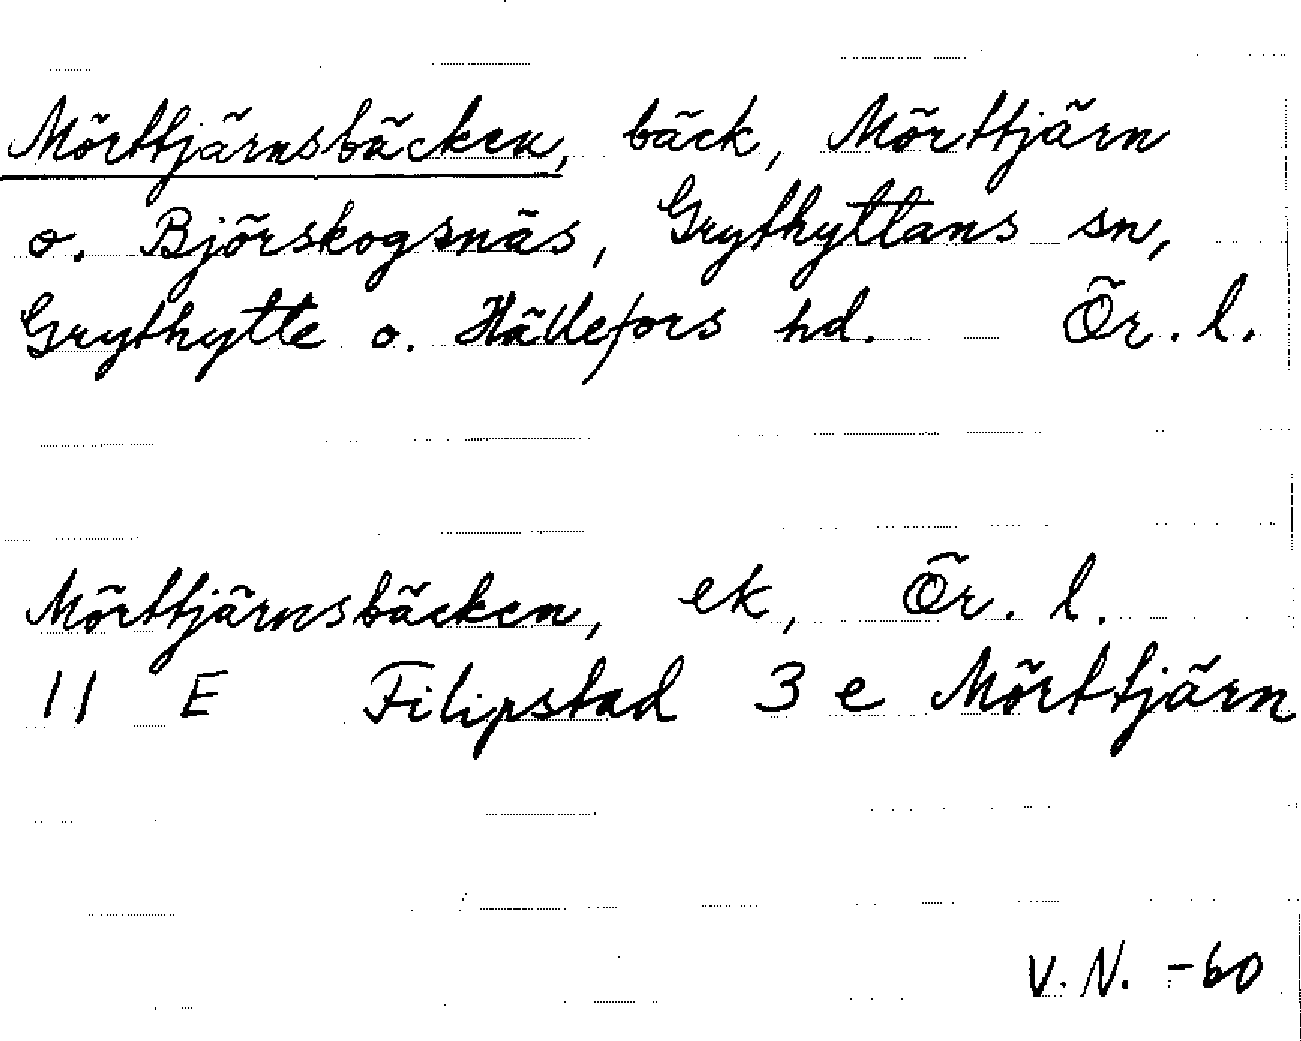 Mörttjärnsbäcken, bäck, Mörttjärn
o. Björskogsnäs, Grythyttans sn,
Grythytte o. Hällefors hd. Ör. l.
Mörttjärnsbäcken, ek, Ör. l.
11 E Filipstad 3 e Mörttjärn
V. N. -60